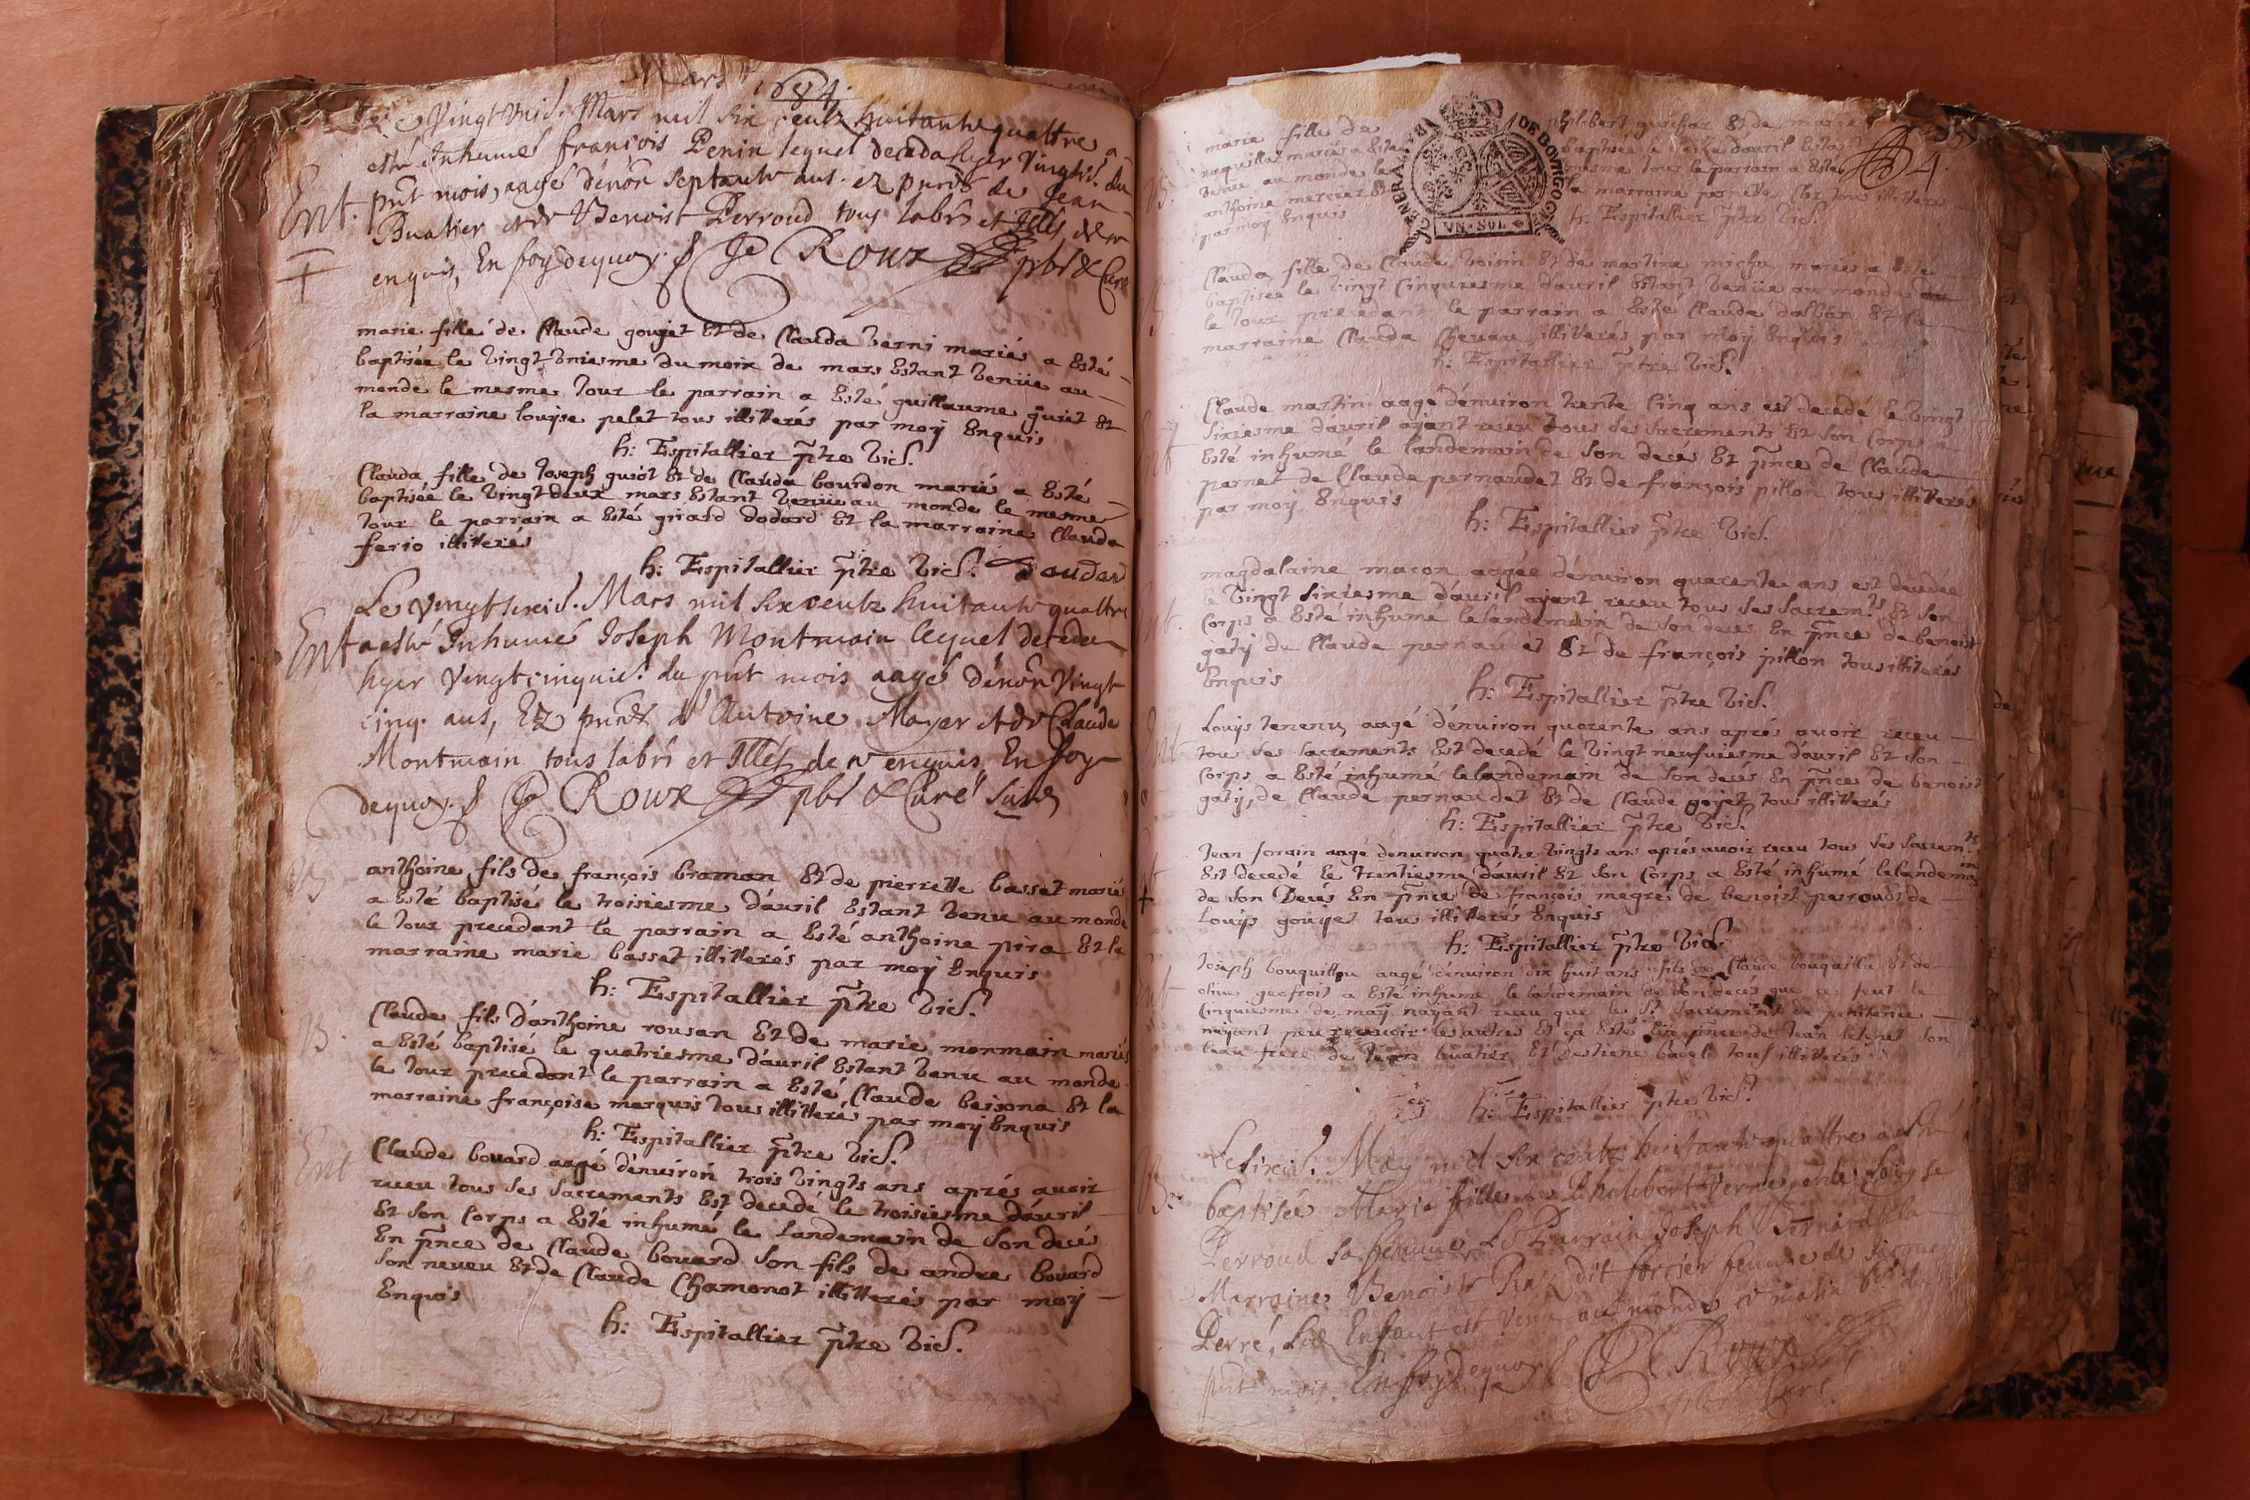 Mars 1684.
Vingt unie. Mars mil six centz huitante quattre a
esté Inhumé françois Penin lequel deceda hyer vingtie. du
Ent. pnt mois, aagé d'enôn septante ans. ez pnces de Jean
Buatier et de Benoist Perroud tous labrs et Illés de ce
enquis, En foy dequoy. Roux pbre & Curé
marie fille de Claude goujet Et de Clauda berni mariés a Esté
baptisée le vingt vniesme du mois de mars Estant venüe au
monde le mesme Jour le parrain a Esté guillaume guiet Et
la marraine louyse pelet tous illitterés par moÿ Enquis
h: Espitallier ptre vic.
Clauda fille de Joseph guiot Et de Clauda bourdon mariés a Esté
baptisée le vingt deux mars Estant venüe au monde le mesme
Jour le parrain a Esté girard dodard Et la marraine Clauda
ferio illiterés
h: Espitallier ptre vic. Doudard
Le vingt sixie. Mars mil six centz huitante quattre
Ent a esté Inhumé Joseph Montmain lequel deceda
hyer vingt cinquie. du pnt mois aagé d'enôn vingt
cinq. ans, Ez pnces d'Antoine Mayer et de Claude
Montmain tous labrs et Illés de ce enquis En foy
dequoy. Roux pbre & Curé susd
B anthoine fils de françois braman Et de pierrette basset mariés
a Esté baptisé le troisiesme d'auril Estant venu au monde
le Jour precedant le parrain a Esté anthoine pira Et la
marraine marie basset illitterés par moÿ Enquis
h: Espitallier ptre vic.
B. Claude fils d'anthoine rousan Et de marie monmain mariés
a Esté baptisé le quatriesme d'auril Estant venu au monde
le Jour precedant le parrain a Esté Claude beisona Et la
marraine françoise marquis tous illitteres par moÿ Enquis
h: Espitallier ptre vic.
Ent Claude bouard aagé d'enuiron trois vingts ans aprés auoir
receu tous ses sacrements Est decedé le troisiesme d'auril
Et son Corps a Esté inhumé le landemain de son decés
En pnce de Claude bouard son fils de andre bouard
son neueu Et de Claude Chamonot illitterés par moÿ
Enquis
h: Espitallier ptre vic.
GENERALITE DE BOVRGOGNE
VN·SOL
marie fille de philibert Et de marie
mariés a Esté baptisée le d'auril Estant
venüe au monde le mesme Jour le parrain a Esté
anthoine mercier Et la marraine tous illitterés
par moÿ Enquis h: Espitallier ptre vic.
Clauda fille de Claude voisin Et de martine michu mariés a Esté
baptisée le vingt cinquiesme d'auril Estant venüe au monde
le Jour precedant le parrain a Esté Claude dalban Et la
marraine Clauda illiterés par moÿ Enquis
h: Espitallier ptre vic.
Claude martin aagé d'enuiron trente Cinq ans est decedé le vingt
sixiesme d'auril aÿant receu tous ses sacrements Et son Corps a
Esté inhumé le landemain de son deces Et pnce de Claude
pernet de Claude pernaudet Et de françois pillon tous illitterés
par moÿ Enquis
h: Espitallier ptre vic.
magdalaine macon aagée d'enuiron quarente ans est decedée
le vingt sixiesme d'auril aÿant receu tous ses sacremts Et son
Corps a Esté inhumé le landemain de son deces En pnce de benoist
gatÿ de Claude pernaudet Et de françois pillon tous illiterés
Enquis
h: Espitallier ptre vic.
Louÿs tenenu aagé d'enuiron quarente ans aprés auoir receu
tous ses sacrements Est decedé le vingt neufuiesme d'auril Et son
Corps a Esté inhumé le landemain de son decés En pnce de benoist
gatÿ, de Claude pernaudet Et de Claude gojet tous illitterés
h: Espitallier ptre vic.
Jean forain aagé d'enuiron quatre vingts ans aprés auoir receu tous ses sacremts
Est decedé le trentiesme d'auril Et son Corps a Esté inhumé le landemain
de son Decés En pnce de françois megre de benoist perroud de
Louÿs goujet tous illitterés Enquis
h: Espitallier ptre vic.
Joseph bouquillon aagé d'enuiron dix huit ans fils de Claude bouquillon Et de
geofroit a Esté inhumé le landemain de son decés que ce feut le
Cinquiesme de maÿ naÿant receu que le St. sacrement de penitence
naÿant peu receuoir les autres Et ça Esté En pnce de Jean son
beau frere de Jean buatier Et d'estiene tous illitterés
h: Espitallier ptre vic.
B. Le sixie. May mil six centz huitante quattre a esté
baptisée Marie fille de Philibert Verne et de Louyse
Perroud sa femme, Le Parrain Joseph Bernard la
Marraine Benoiste dit forcier femme de Jacque
Perré, Lad Enfant est venu au monde ce matin
pnt mois. En foy dequoy Roux
pbre & Curé